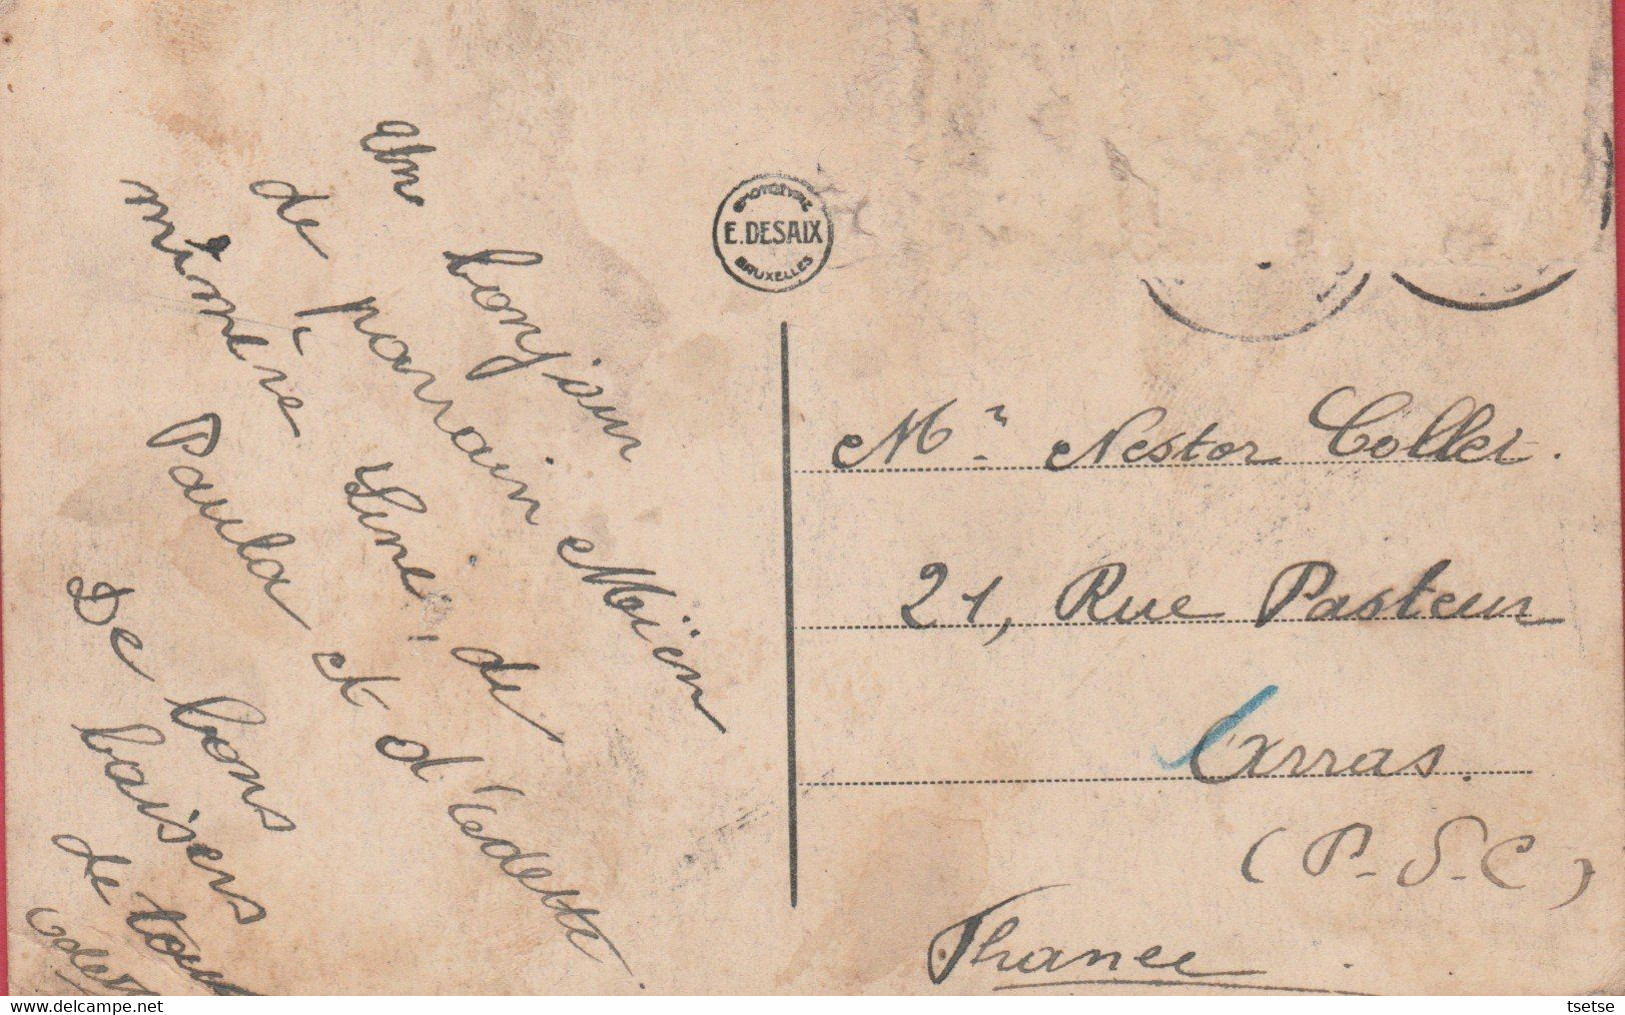 Un bonjour
de parrain Maïen
mémère Line, de
Paula et d'Edette
De bons
baisers
de tous
PHOTOTYPIE
E. DESAIX
BRUXELLES
Mr Nestor Collet.
21, Rue Pasteur
Arras.
(P-d-C)
France
delcampe.net
tsetse